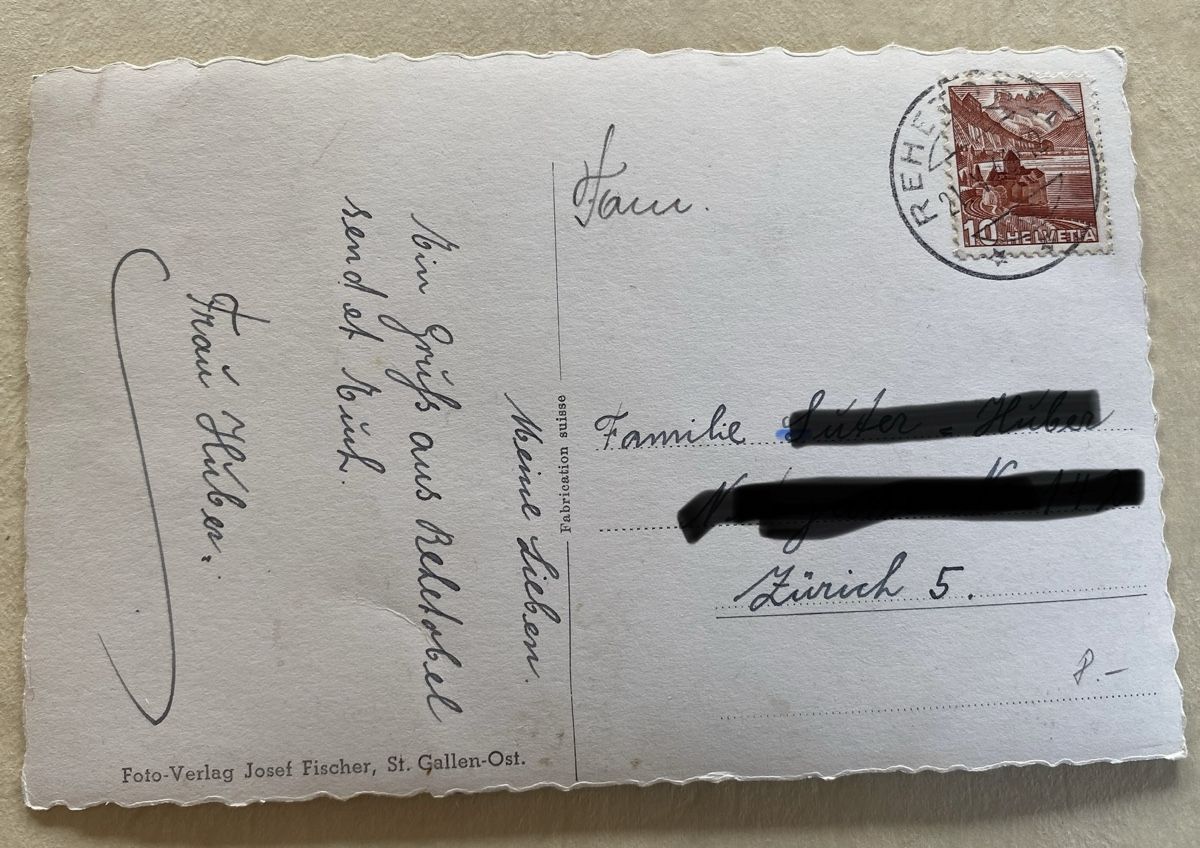 Meine Lieben.
Ein Gruß aus Rehetobel
sendet Euch.
Frau Huber.
Foto-Verlag Josef Fischer, St. Gallen-Ost.
Fabrication suisse
REHET
10 HELVETIA
Fam.
Familie
Zürich 5.
8.–